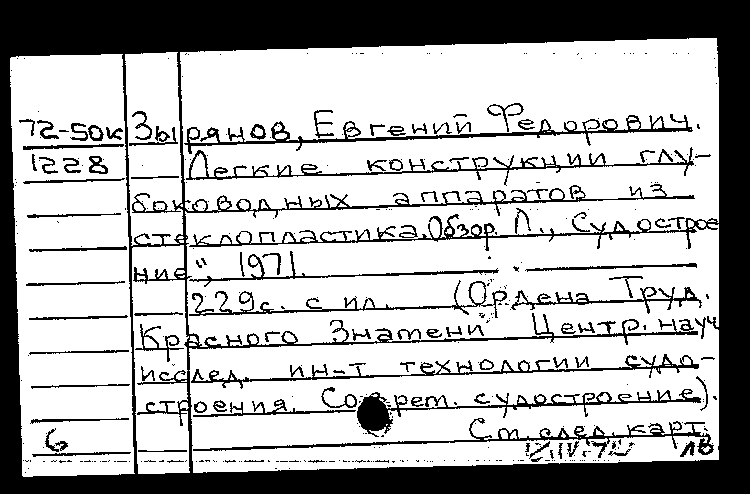 72-50к Зырянов, Евгений Федорович.
1228 Легкие конструкции глу-
боководных аппаратов из
стеклопластика. Обзор. Л., "Судострое
ние", 1971.
229с. с ил. (Ордена Труд.
Красного Знамени Центр. науч
исслед. ин-т технологии судо-
строения. Соврем. судостроение).
6 См. след. карт.
ЛВ